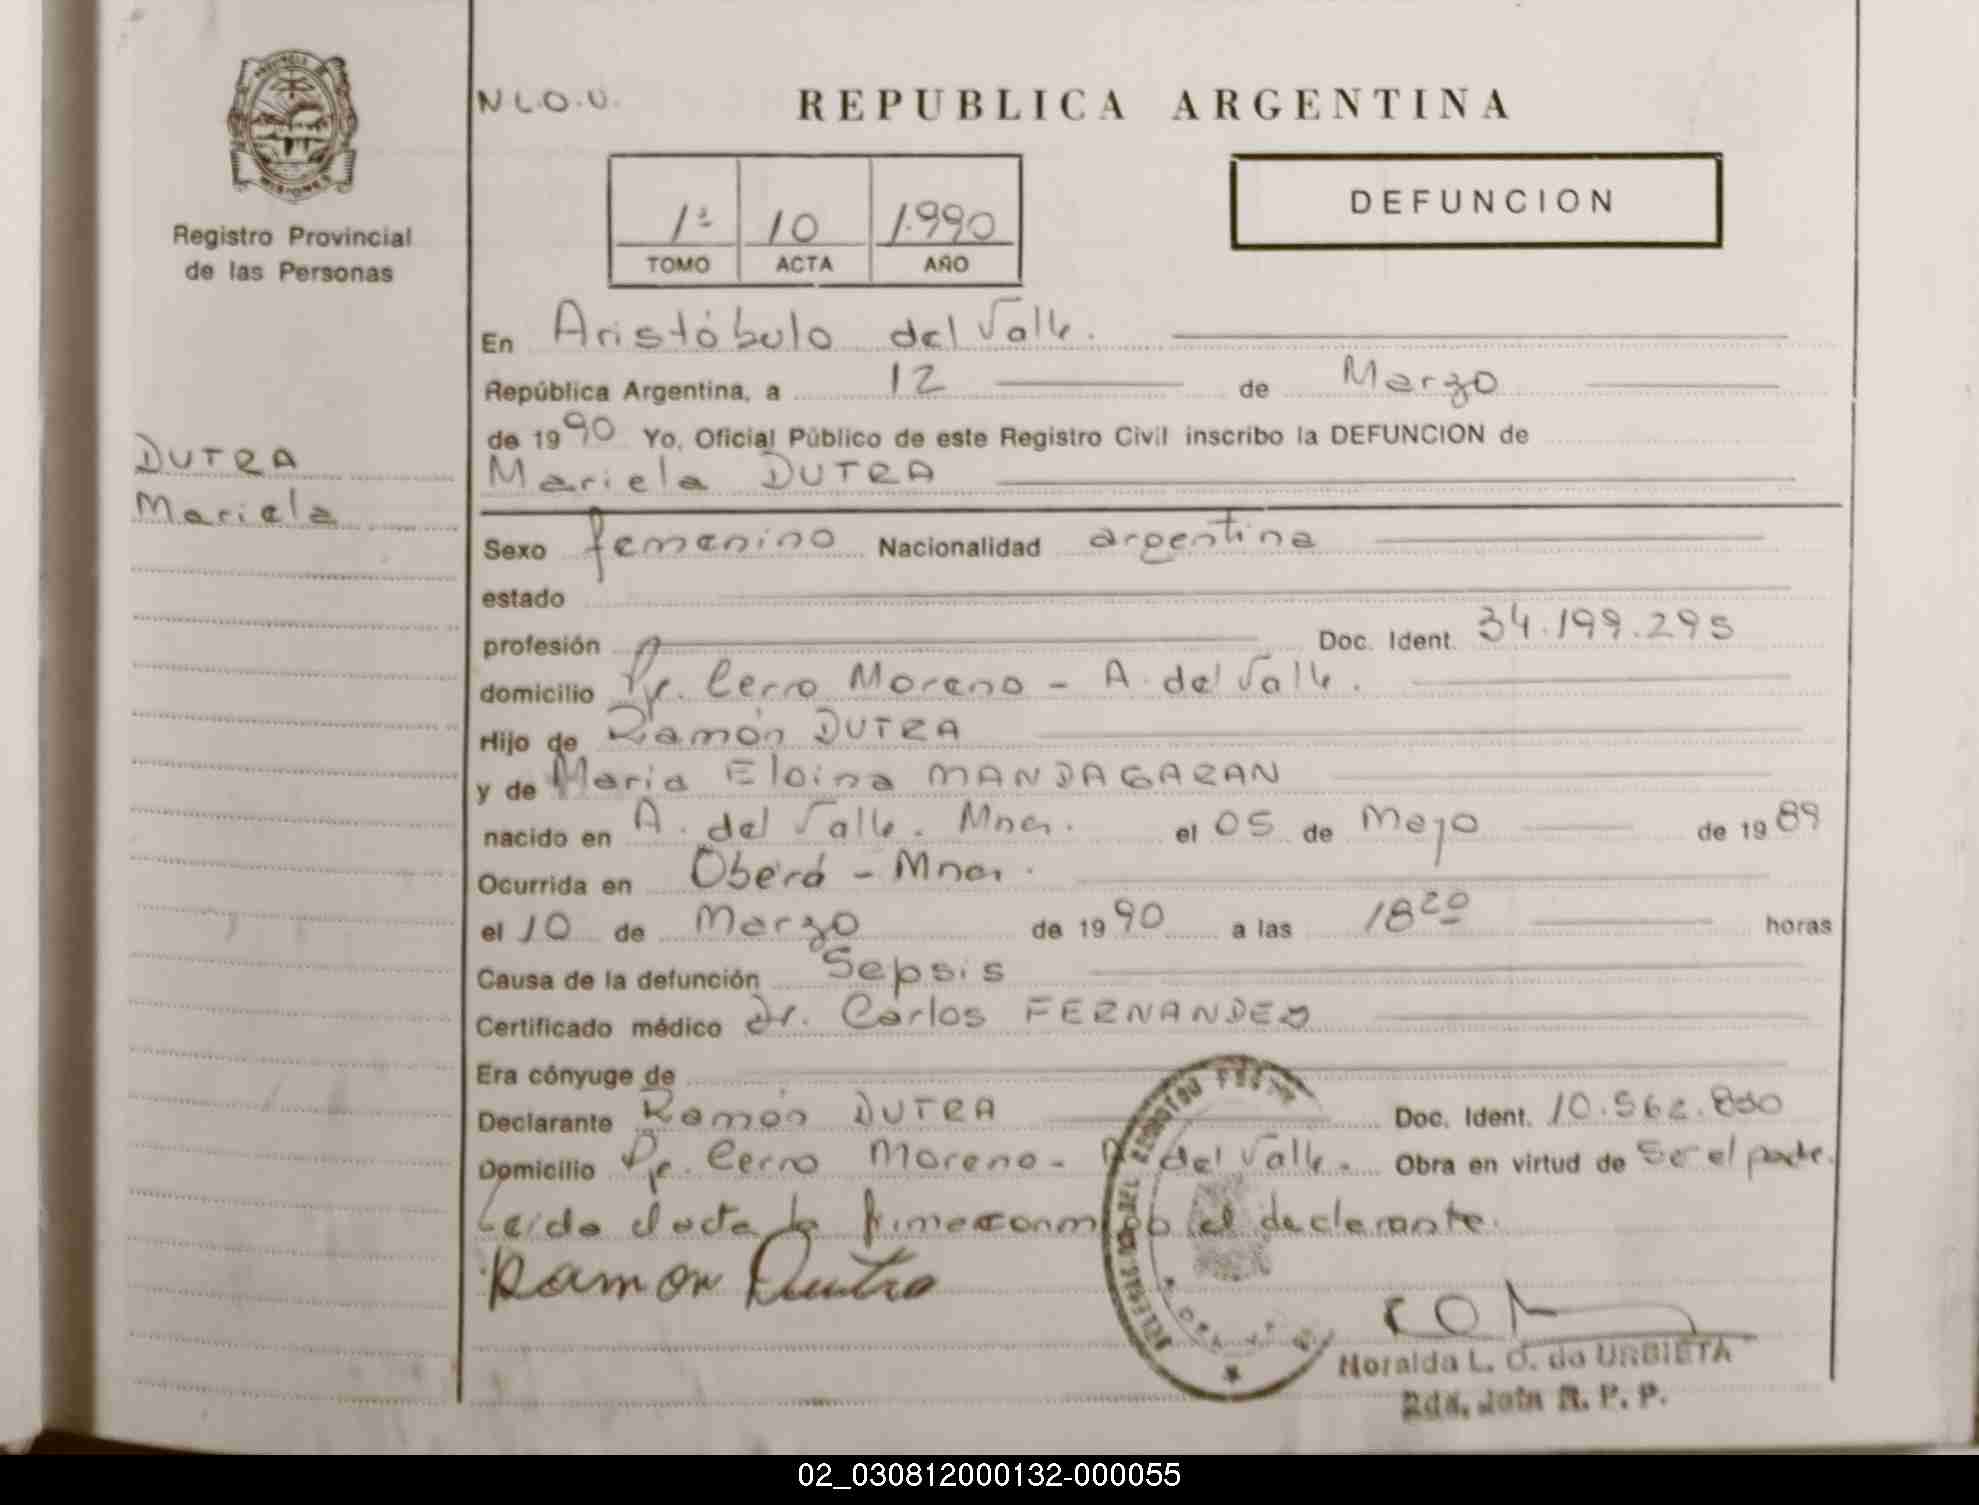 PROVINCIA DE
MISIONES
Registro Provincial
de las Personas
DUTRA
Mariela
N L.O.U.
REPUBLICA ARGENTINA
1ª 10 1.990
TOMO ACTA AÑO
DEFUNCION
En Aristóbulo del Valle.
República Argentina, a 12 de Marzo
de 1990 Yo, Oficial Público de este Registro Civil inscribo la DEFUNCION de
Mariela DUTRA
Sexo femenino Nacionalidad argentina
estado
profesión Doc. Ident. 34.199.295
domicilio Pje. Cerro Moreno - A. del Valle.
Hijo de Ramón DUTRA
y de Maria Eloina MANDAGARAN
nacido en A. del Valle. Mnes. el 05 de Mayo de 1989
Ocurrida en Oberá - Mnes.
el 10 de Marzo de 1990 a las 18 20 horas
Causa de la defunción Sepsis
Certificado médico Dr. Carlos FERNANDEZ
Era cónyuge de
Declarante Ramón DUTRA Doc. Ident. 10.562.800
Domicilio Pje. Cerro Moreno - A del Valle. Obra en virtud de Ser el padre.
Leida el acta la firma conmigo el declarante.
Ramon Dutra
Noralda L. O. de URBIETA
2da. Jefa R. P. P.
02_030812000132-000055